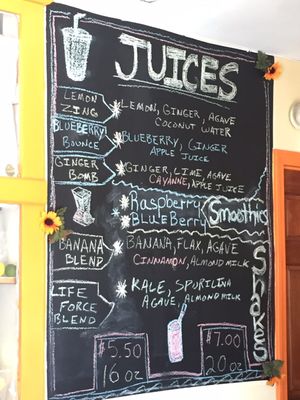 JUICES
LEMON ZING
LEMON, GINGER, AGAVE
COCONUT WATER
BLUEBERRY BOUNCE
BLUEBERRY, GINGER
APPLE JUICE
GINGER BOMB
GINGER, LIME, AGAVE
CAYANNE, APPLE JUICE
Raspberry
BLUEBERRY
Smoothies
BANANA BLEND
BANANA, FLAX, AGAVE
CINNAMON, ALMOND MILK
LIFE FORCE BLEND
KALE, SPURILINA
AGAVE, ALMOND MILK
Shakes
$5.50
16 oz
$7.00
20 oz